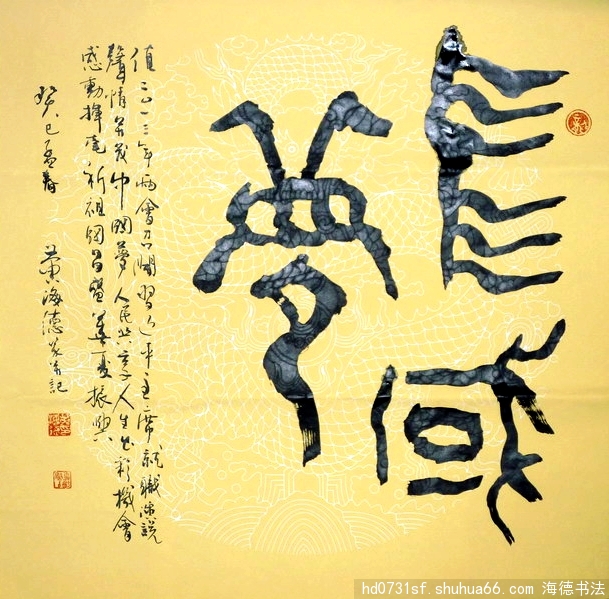 中國
夢
值二〇一三年兩會召開習近平主席就職演說
聲情並茂中國夢人民共享人生出彩機會
感動揮毫祈祖國昌盛華夏振興
癸巳孟春
黃海德 記
hd0731sf.shuhua66.com 海德书法